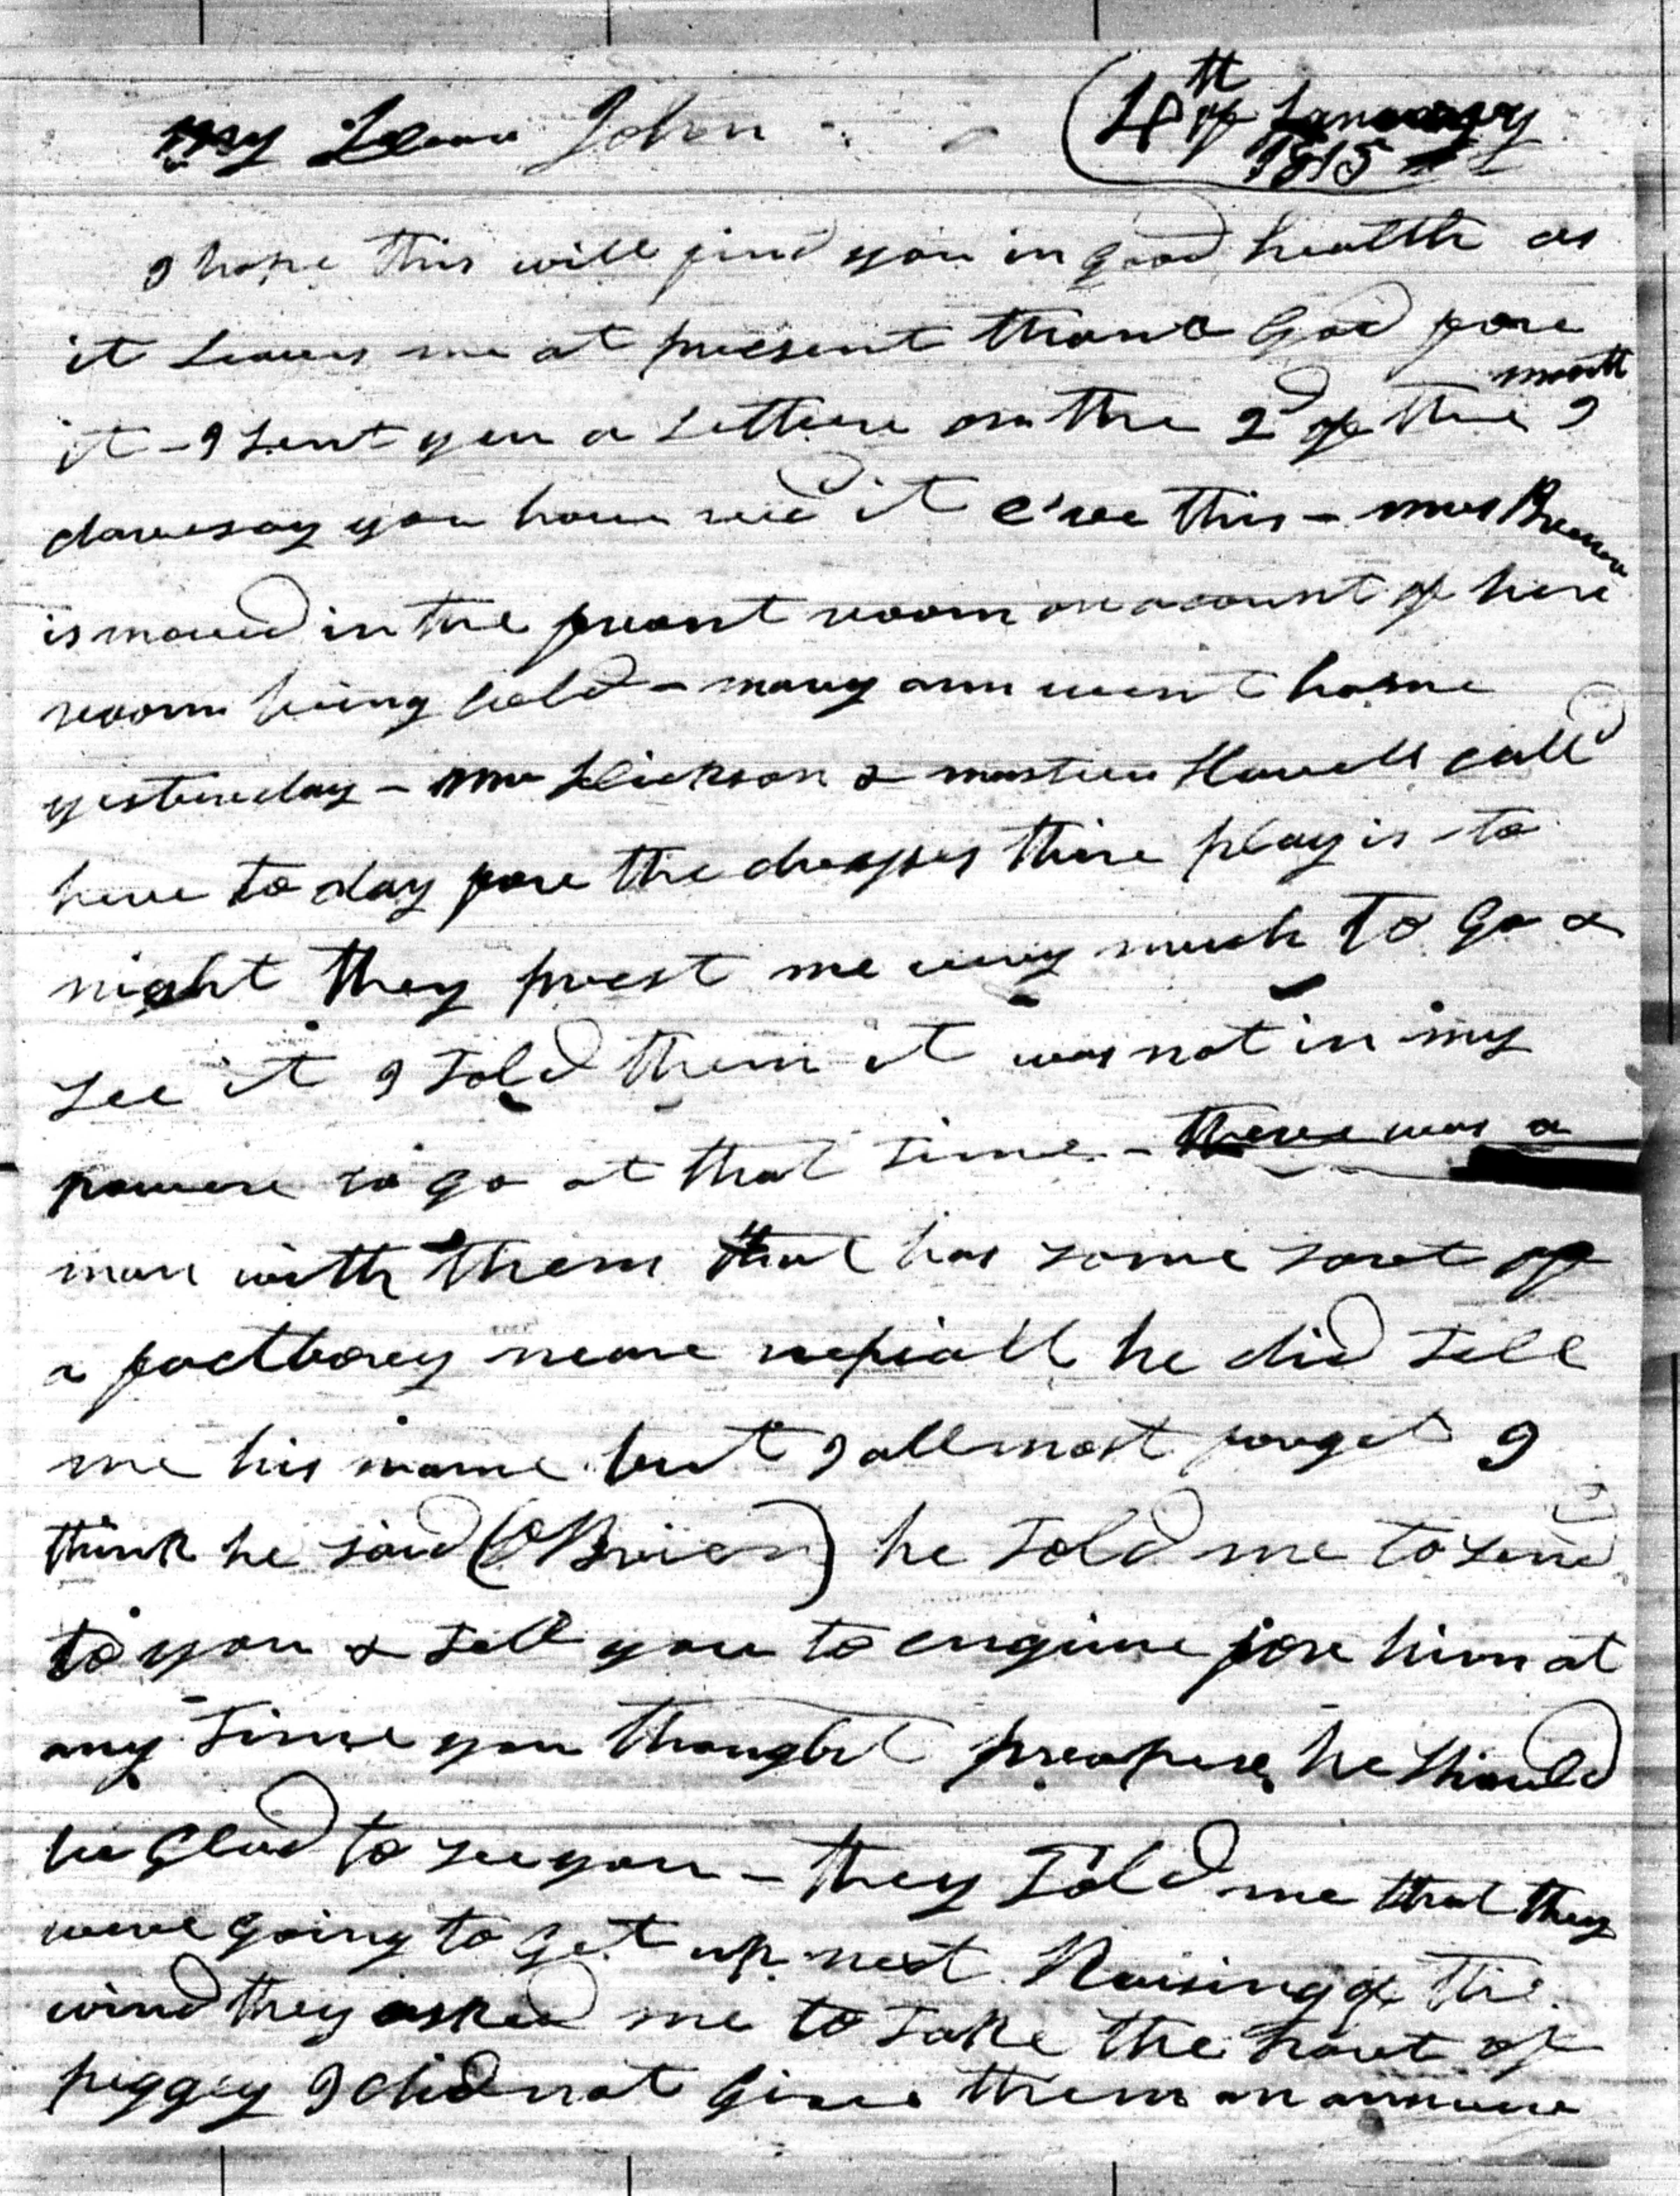 My Dear John
(4th of January
1815
I hope this will find you in good health as
it Leaves me at preesent thank God fore
it - I sent you a Lettere on the 2d of the month I
daresay you have recd it e're this - mrs Brown
is moved in the front room on acount of here
room being cold - mary ann went home
yestereday - mr Dickson & master Howell calld
here to day fore the dresses there play is to
night they prest me very much to Go &
see it I told them it was not in my
powere to go at that time - there was a
man with them that has some sort of
a facthorey neare he did tell
me his name but I allmost forget I
think he said (OBrien) he told me to send
to you & tell you to enquire fore him at
any time you thought preopere he should
be Glad to see you - they told me that they
were going to get up next Raising of the
wind they asked me to take the part of
peggey I did not give them an answere